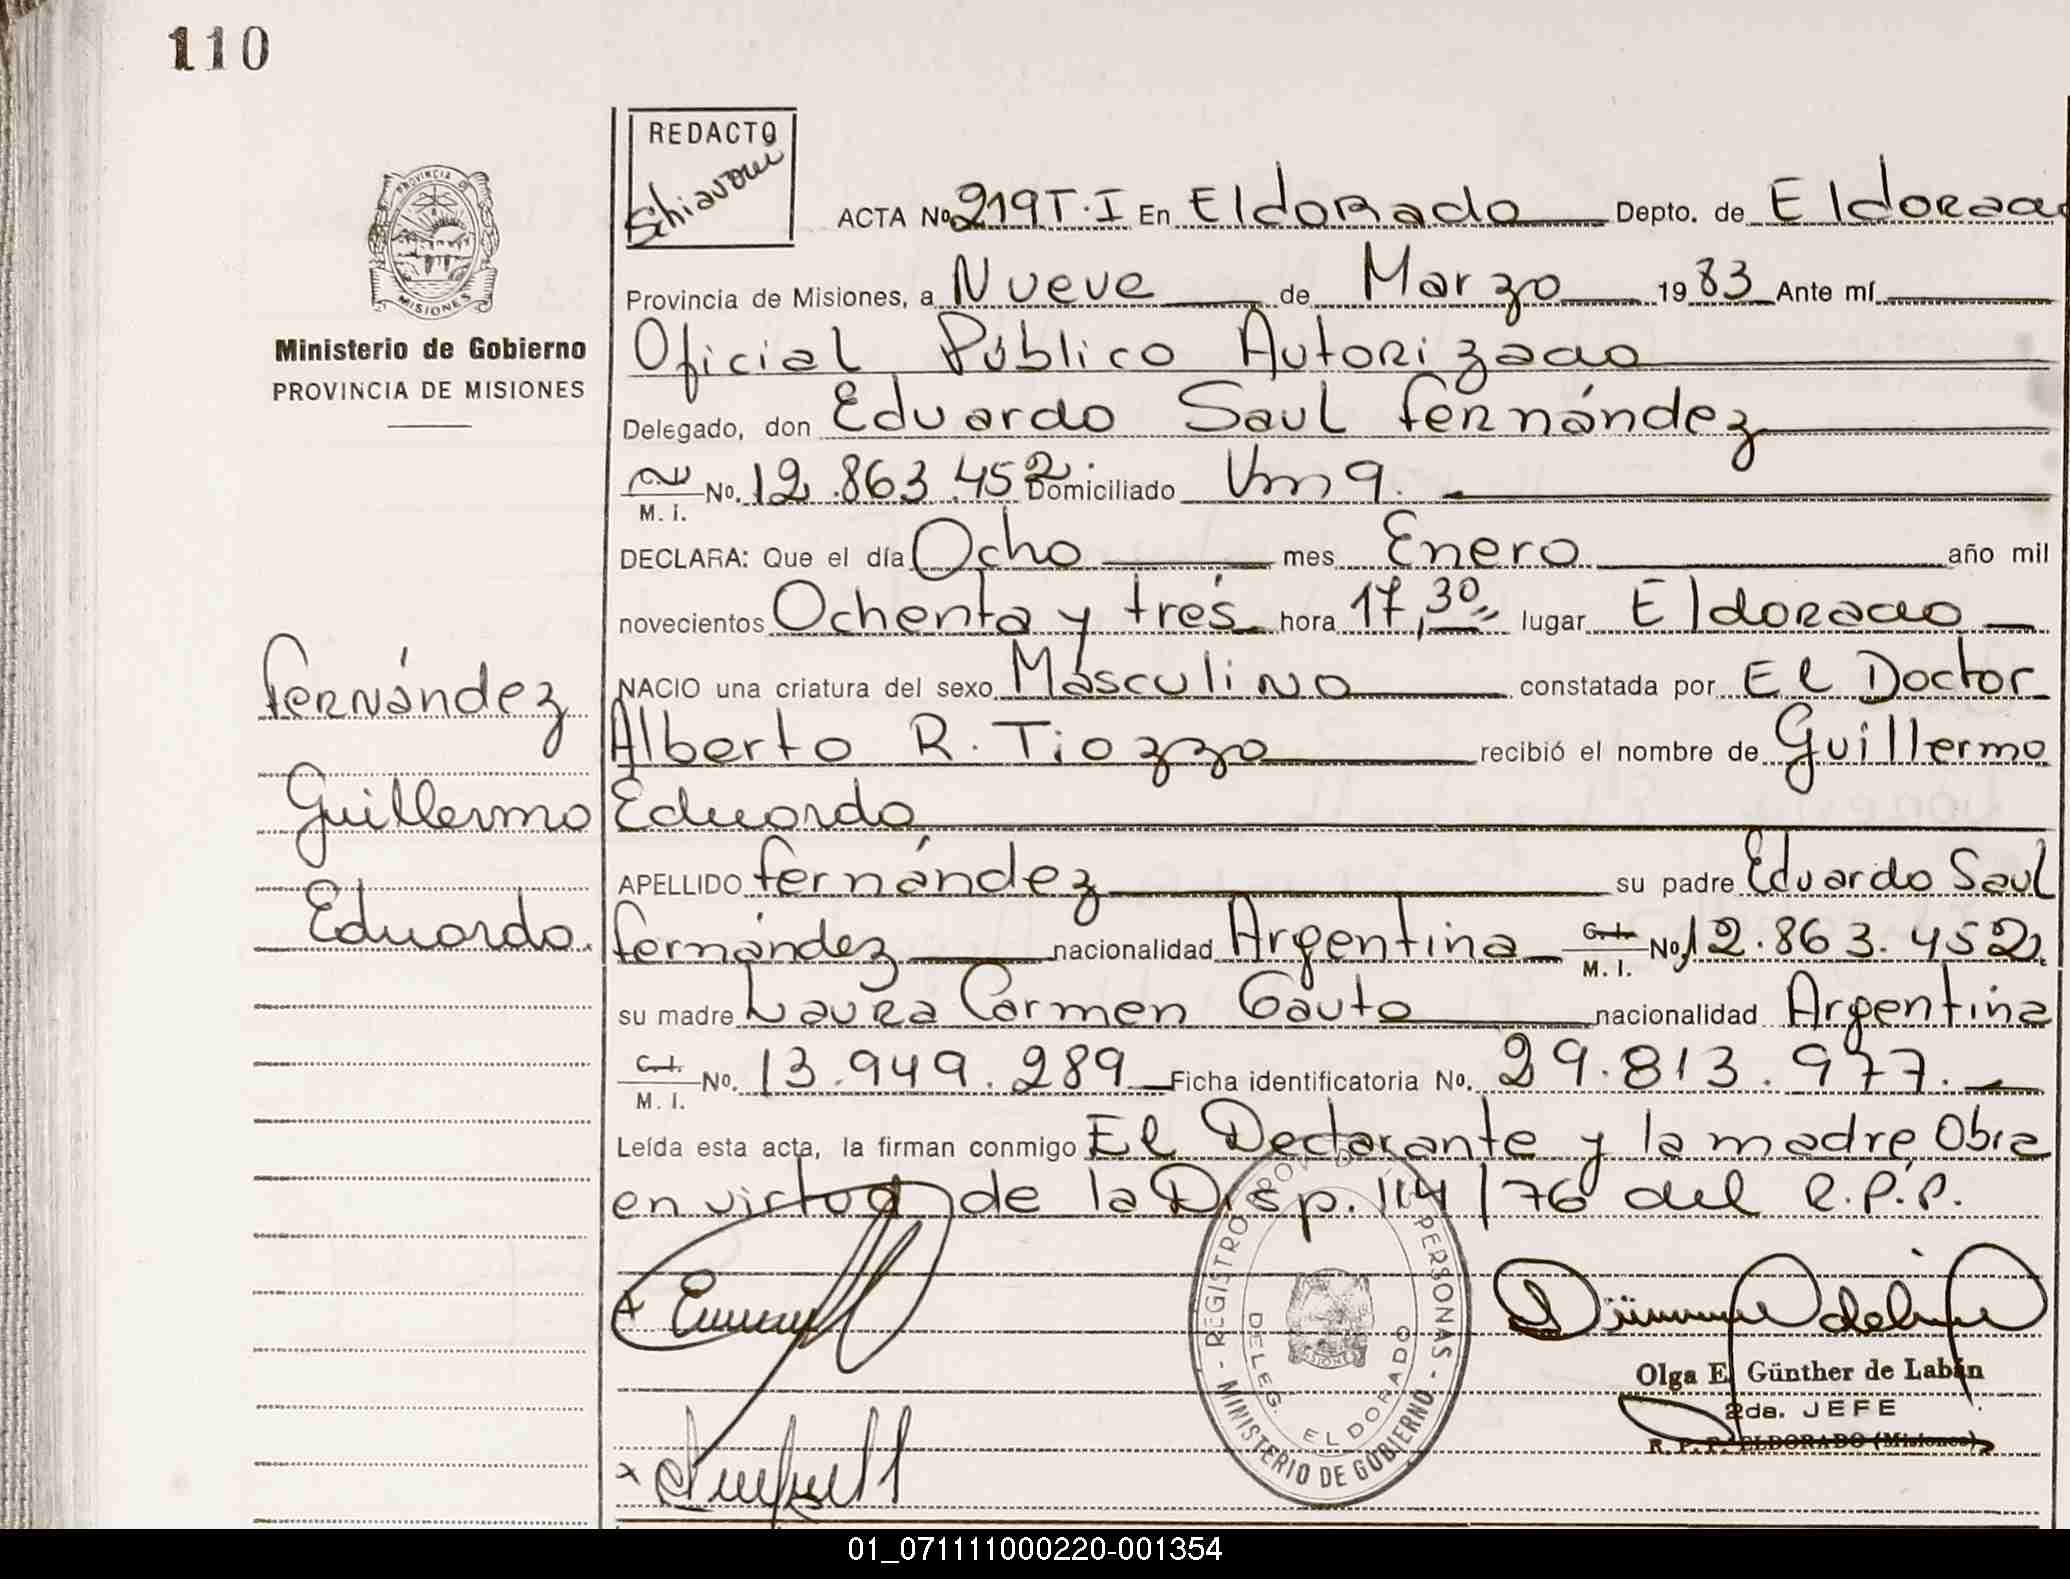 110
REDACTO
Schiavoni
ACTA No. 219 T.I En Eldorado Depto. de Eldorado
Provincia de Misiones, a Nueve de Marzo 1983 Ante mí
Ministerio de Gobierno
PROVINCIA DE MISIONES
Oficial Público Autorizado
Delegado, don Eduardo Saul Fernández
M. I. No. 12.863.452 Domiciliado
DECLARA: Que el día Ocho mes Enero año mil
novecientos Ochenta y tres hora 17,30 lugar Eldorado
Fernández
Guillermo
Eduardo.
NACIO una criatura del sexo Masculino constatada por El Doctor
Alberto R. Tiozzo recibió el nombre de Guillermo
Eduardo
APELLIDO Fernández su padre Eduardo Saul
Fernández nacionalidad Argentina C.I. M. I. No. 12.863.452
su madre Laura Carmen Gauto nacionalidad Argentina
C.I. M. I. No. 13.949.289 Ficha identificatoria No. 29.813.977.
Leída esta acta, la firman conmigo El Declarante y la madre, Obra
en virtud de la Disp. 114/76 del R.P.P.
REGISTRO PROV. DE PERSONAS
MINISTERIO DE GOBIERNO
DELEG. ELDORADO
Olga E. Günther de Labán
2da. JEFE
R. P. P. ELDORADO (Misiones)
PROVINCIA DE MISIONES
01_071111000220-001354